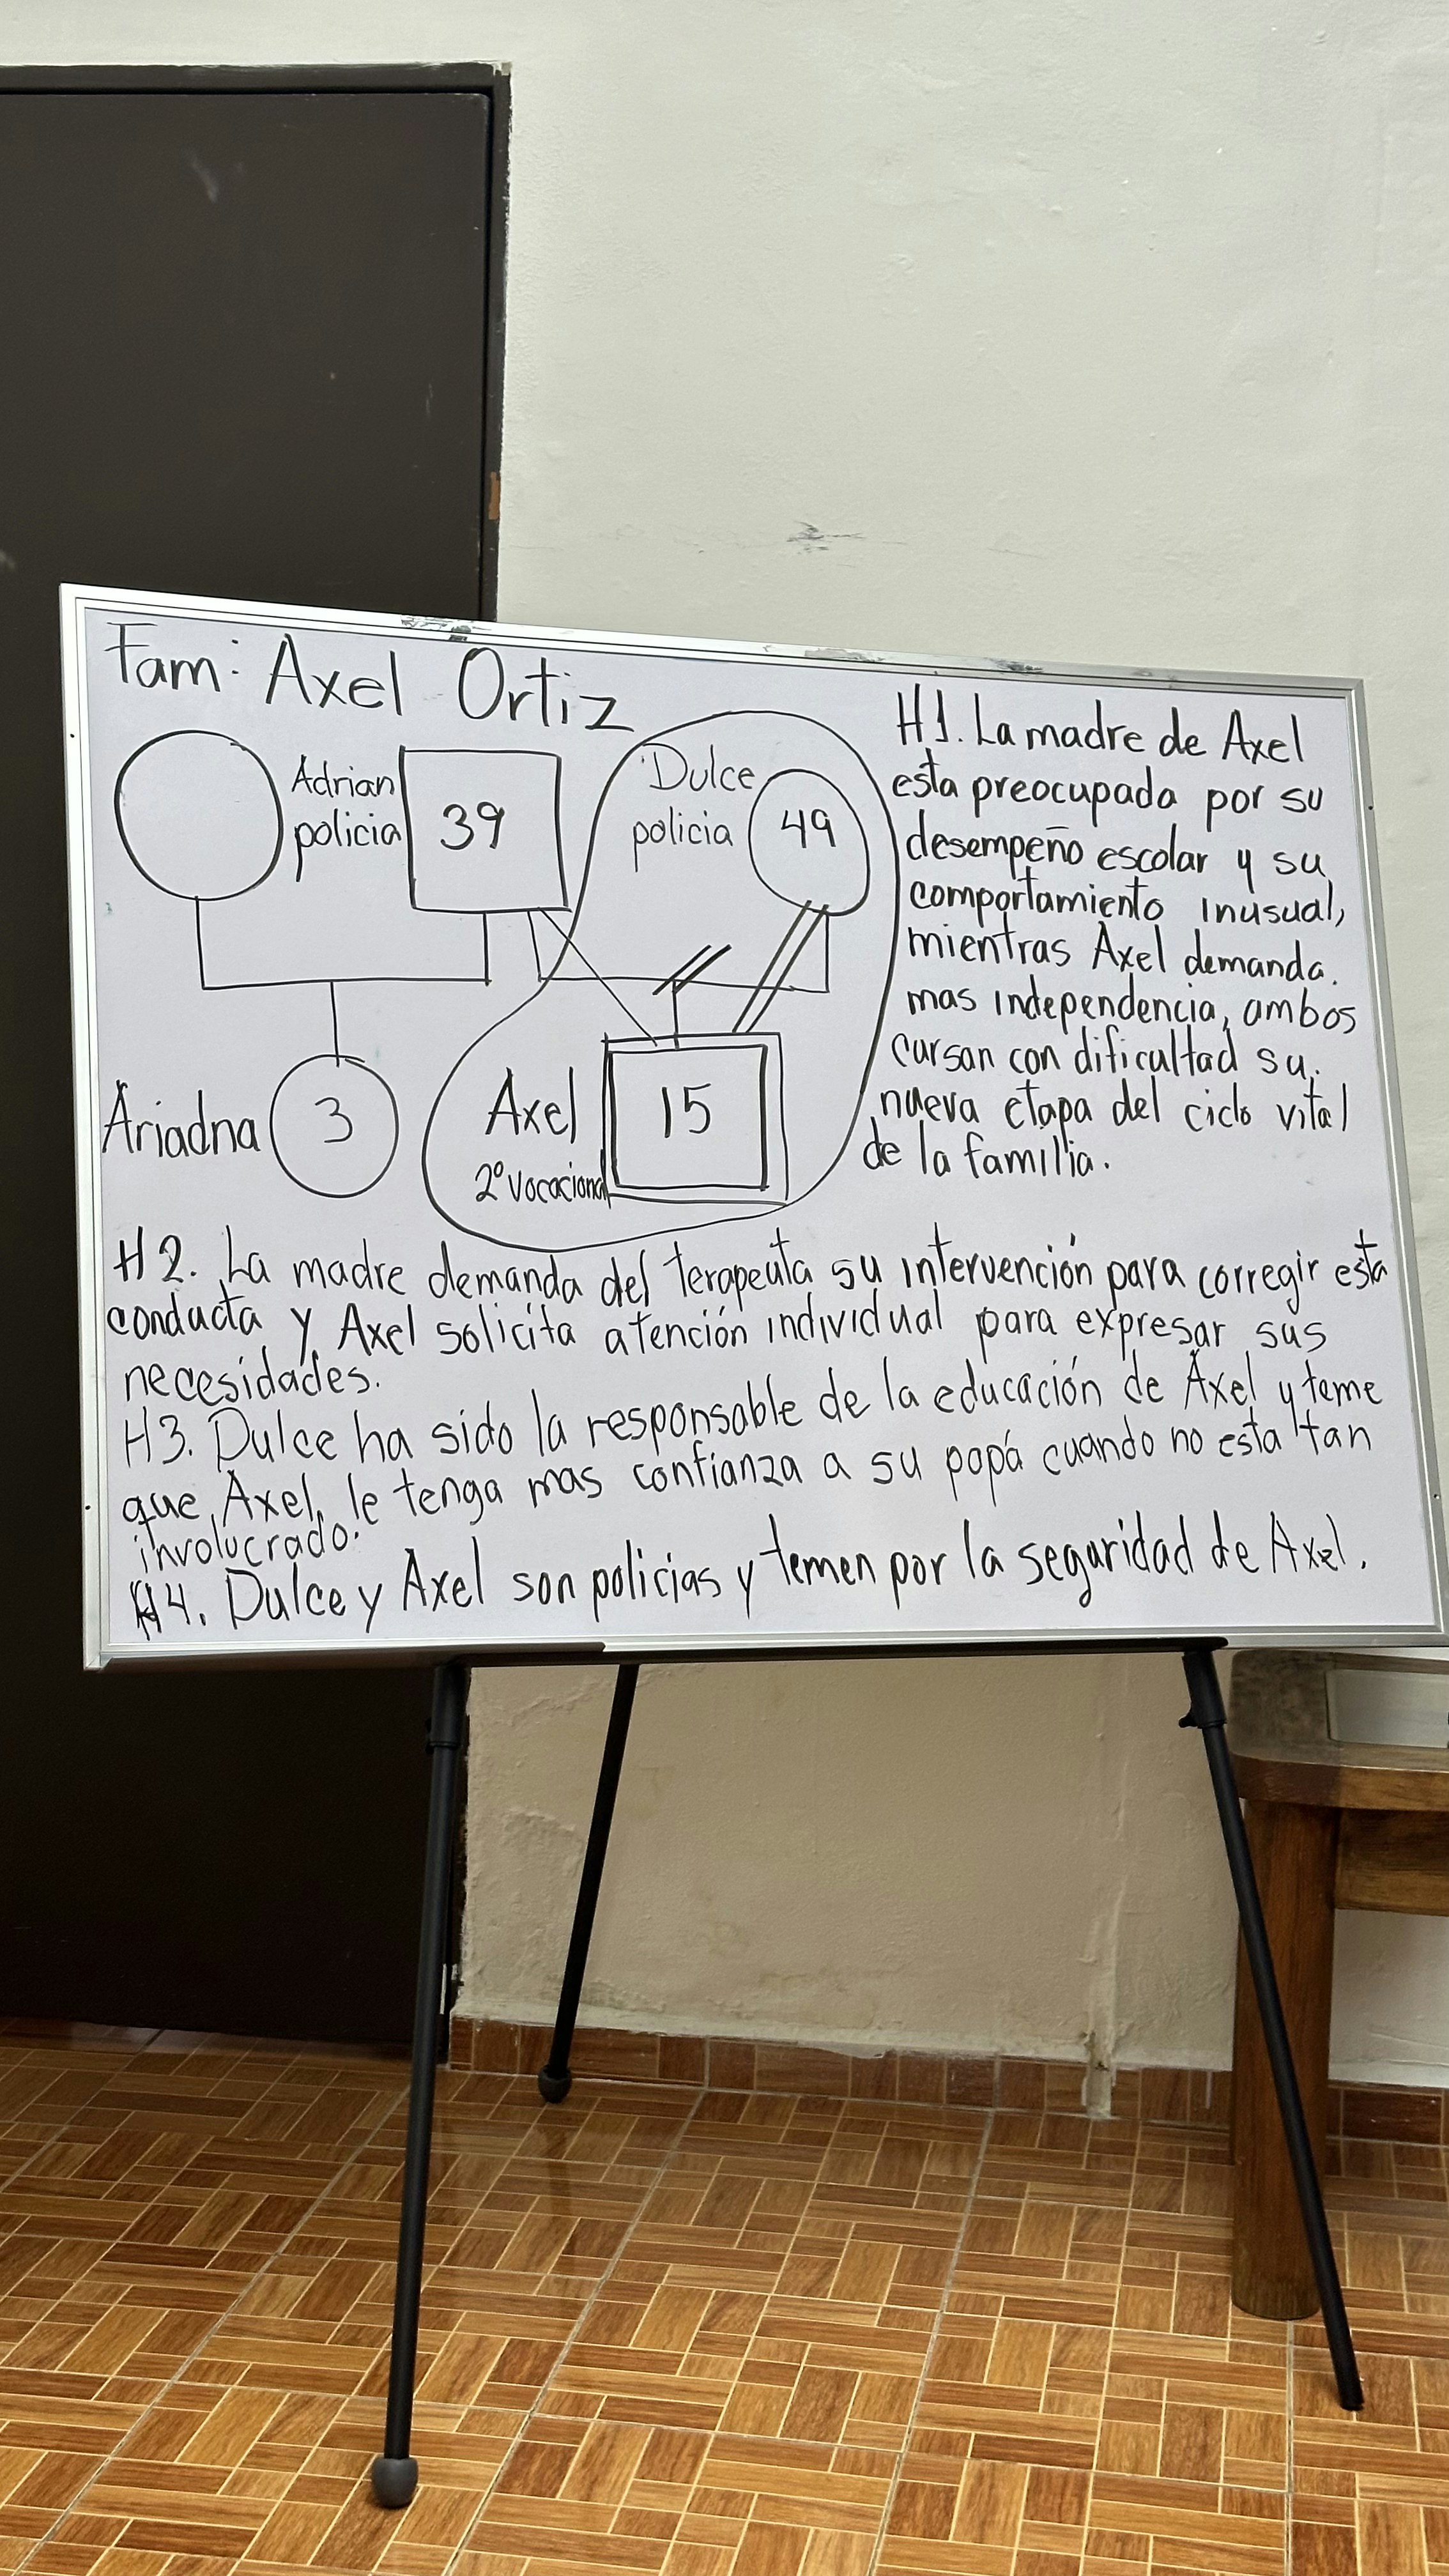 Fam: Axel Ortiz
Adrian
policia
39
Dulce
policia
49
Ariadna
3
Axel
2º vocacional
15
H1. La madre de Axel
esta preocupada por su
desempeño escolar y su
comportamiento inusual,
mientras Axel demanda
mas independencia, ambos
cursan con dificultad su
nueva etapa del ciclo vital
de la familia.
H2. La madre demanda del terapeuta su intervención para corregir esta
conducta y Axel solicita atención individual para expresar sus
necesidades.
H3. Dulce ha sido la responsable de la educación de Axel y teme
que Axel le tenga mas confianza a su papá cuando no esta tan
involucrado.
H4. Dulce y Axel son policias y temen por la seguridad de Axel.